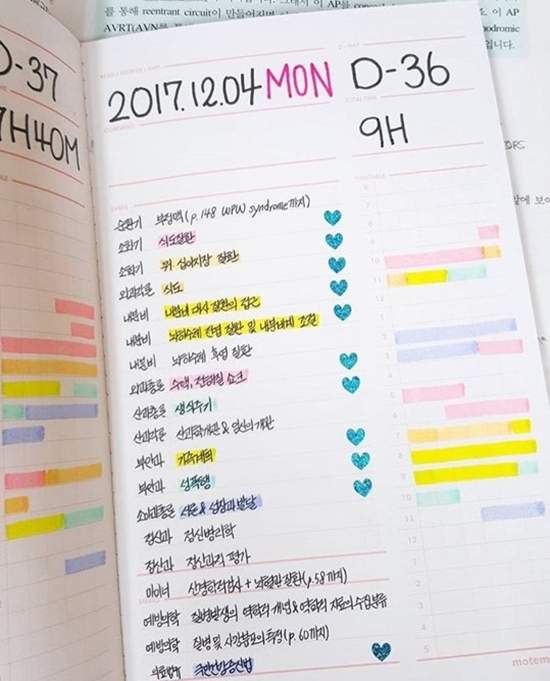 를 통해 reentrant circuit이 만들어지면
이 AP
AVRT(AVN를
dromic
입니다.
D-37
7H40M
2017.12.04 MON D-36
9H
순환기 부정맥(p.148 WPW syndrome까지)
소화기 식도질환
소화기 위, 십이지장 질환
외과각론 식도
내분비 내분비 대사 질환의 접근
내분비 뇌하수체 전엽 질환 및 내분비계 조절
내분비 뇌하수체 후엽 질환
외과총론 수액, 전해질 쇼크
산과총론 생식주기
산과각론 산과학개관 & 임신의 개관
부인과 가족계획
부인과 성폭행
소아과총론 서론 & 성장과 발달
정신과 정신병리학
정신과 정신과적 평가
마이너 신경학적검사 + 뇌혈관 질환(p.58까지)
예방의학 질병발생의 역학적 개념 & 역학적 자료의 수집분류
예방의학 질병 및 사건분포의 특성(p.60까지)
의료법규
6
7
8
9
10
11
12
1
2
3
4
5
6
7
8
9
10
11
12
1
2
3
4
5
motem